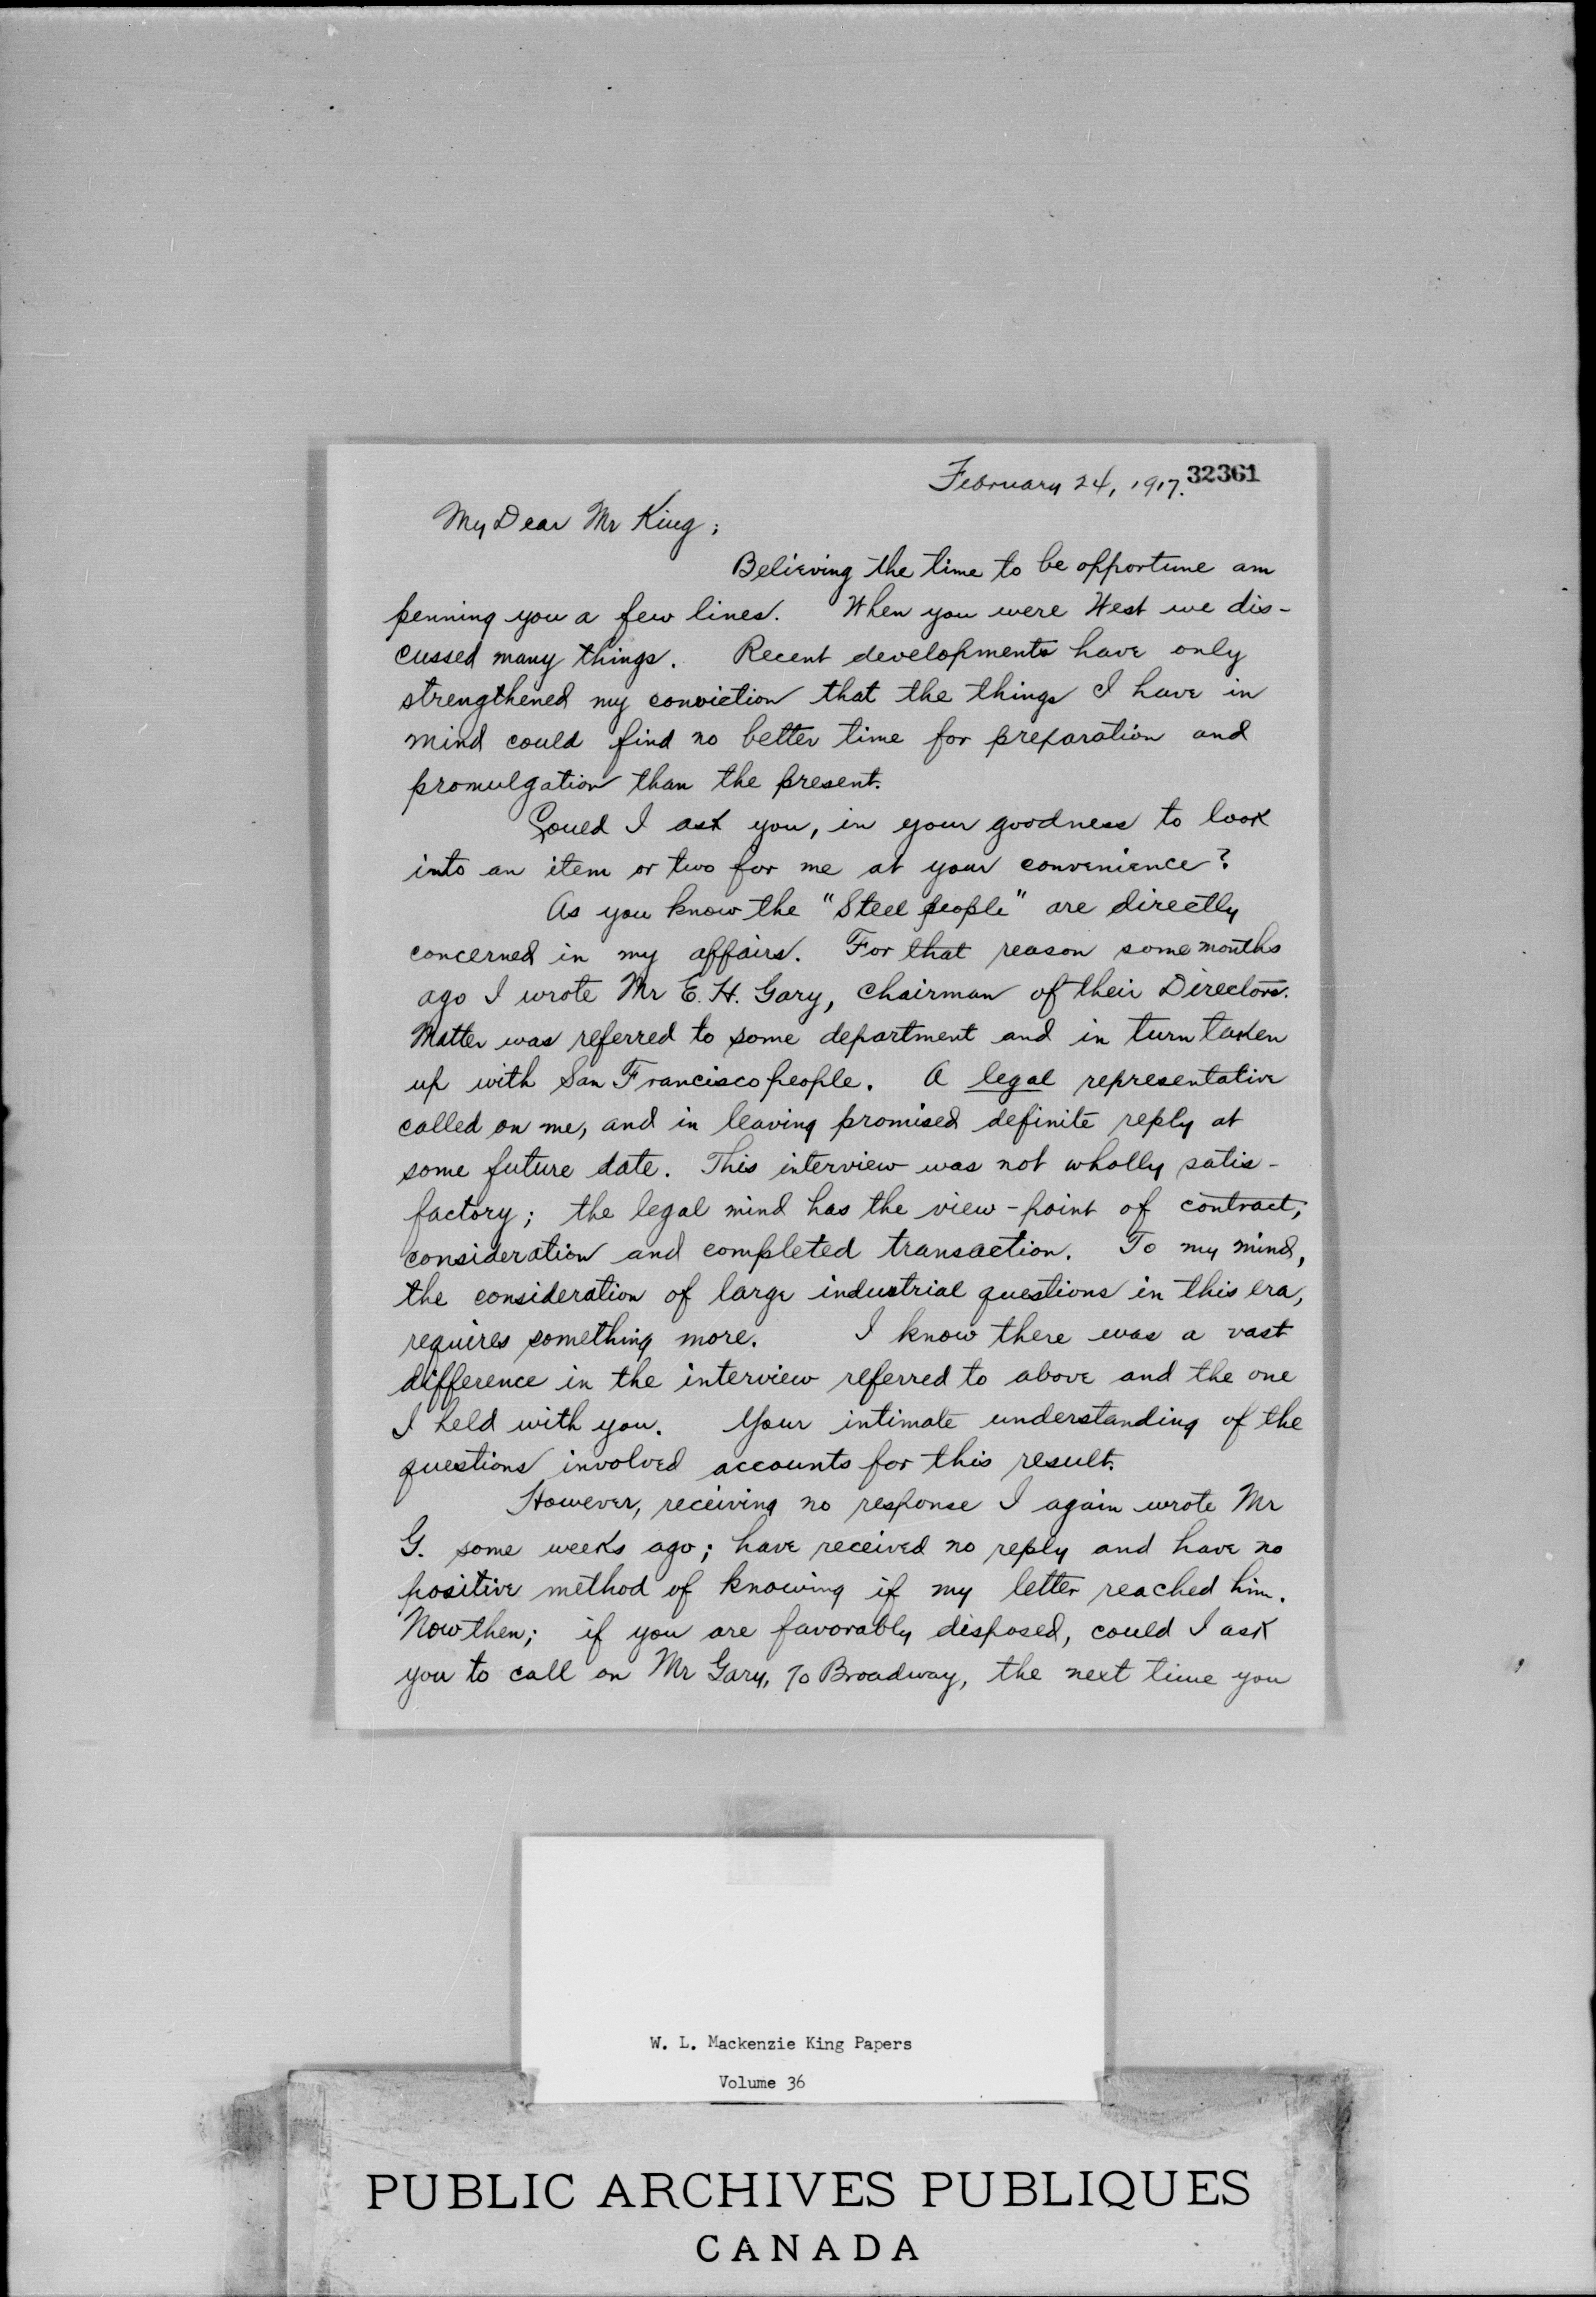 February 24, 1917. 32361
My Dear Mr King;
Believing the time to be opportune am
penning you a few lines. When you were West we dis-
cussed many things. Recent developments have only
strengthened my conviction that the things I have in
mind could find no better time for preparation and
promulgation than the present.
Could I ask you, in your goodness to look
into an item or two for me at your convenience?
As you know the "Steel people" are directly
concerned in my affairs. For that reason some months
ago I wrote Mr E. H. Gary, Chairman of their Directors.
Matter was referred to some department and in turn taken
up with San Francisco people. A legal representative
called on me, and in leaving promised definite reply at
some future date. This interview was not wholly satis-
factory; the legal mind has the view-point of contract,
consideration and completed transaction. To my mind,
the consideration of large industrial questions in this era,
requires something more. I know there was a vast
difference in the interview referred to above and the one
I held with you. Your intimate understanding of the
questions involved accounts for this result.
However, receiving no response I again wrote Mr
G. some weeks ago; have received no reply and have no
positive method of knowing if my letter reached him.
Now then; if you are favorably disposed, could I ask
you to call on Mr Gary, 70 Broadway, the next time you
W. L. Mackenzie King Papers
Volume 36
PUBLIC ARCHIVES PUBLIQUES
CANADA